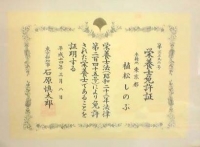 栄養士免許証
本籍地 東京都
植松しのぶ
栄養士法(昭和二十二年法律
第二百四十五号)により免許
された栄養士であることを
証明する
東京都知事 石原慎太郎